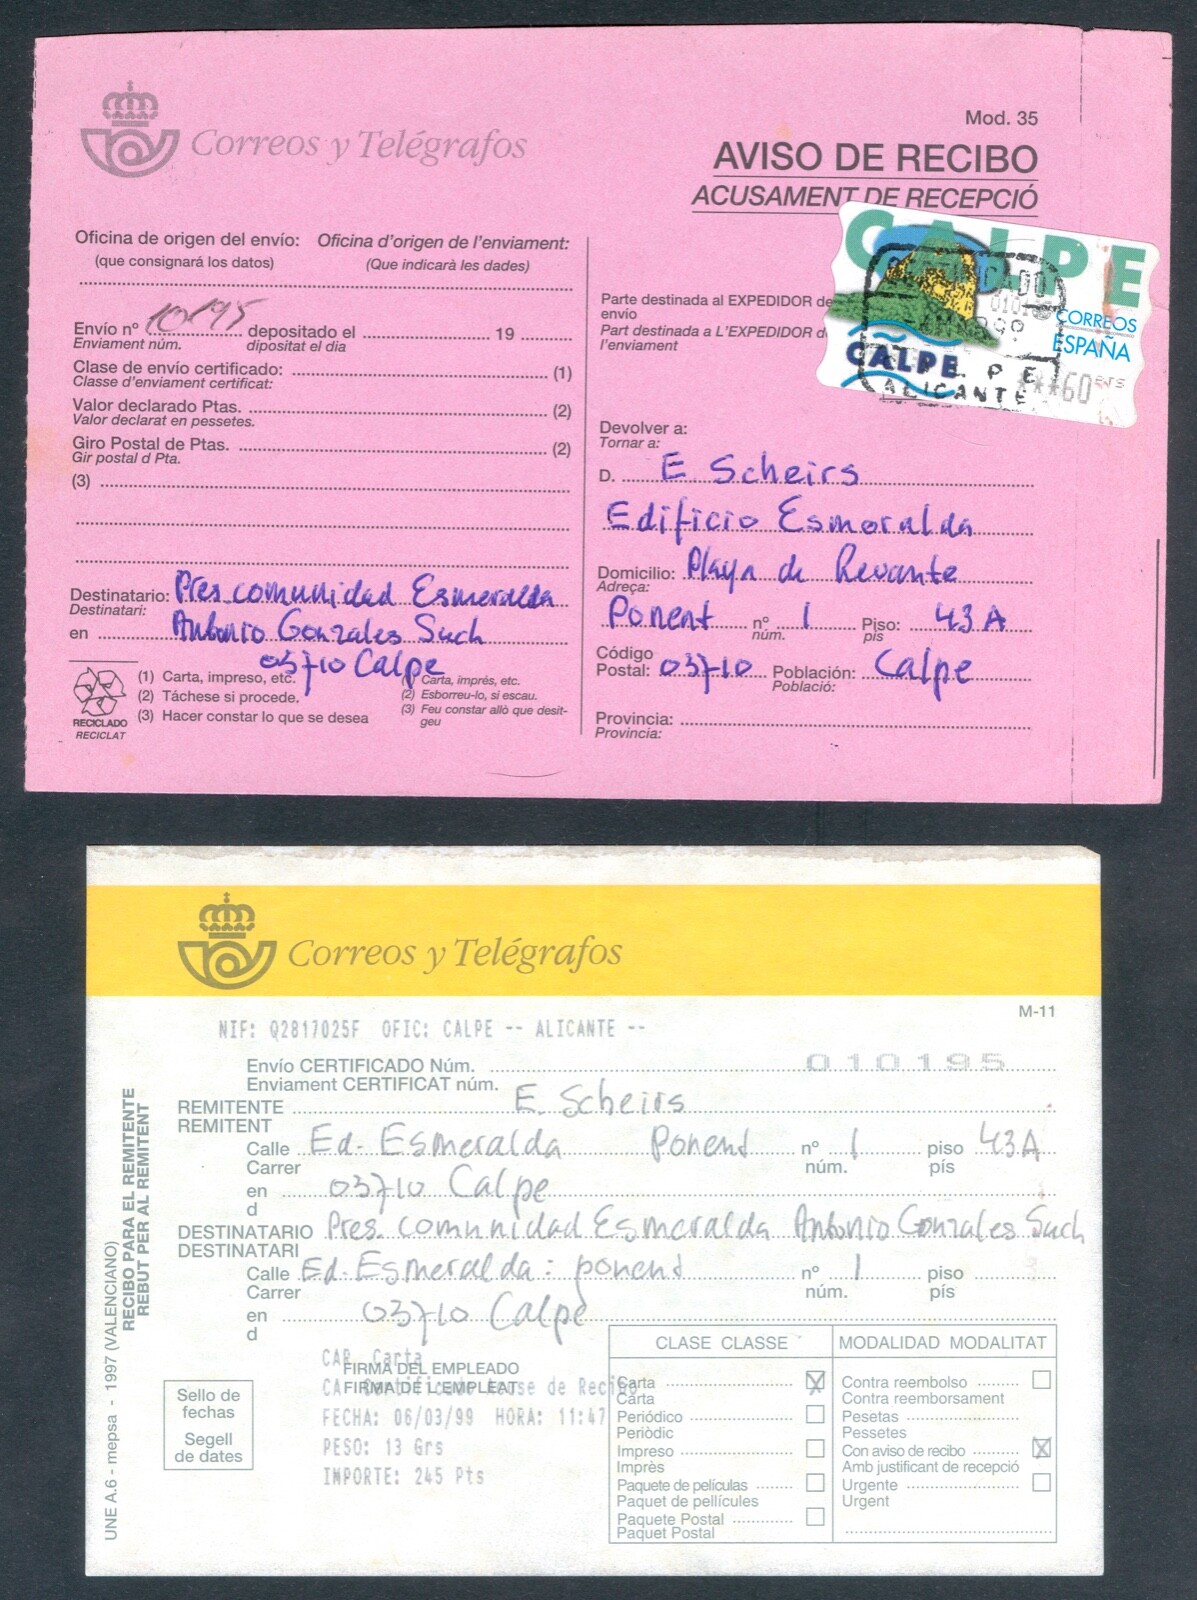 Correos y Telégrafos
Mod. 35
AVISO DE RECIBO
ACUSAMENT DE RECEPCIÓ
Oficina de origen del envío: Oficina d'origen de l'enviament:
(que consignará los datos) (Que indicarà les dades)
Envío nº 10195 depositado el 19
Enviament núm. dipositat el dia
Clase de envío certificado: (1)
Classe d'enviament certificat:
Valor declarado Ptas. (2)
Valor declarat en pessetes.
Giro Postal de Ptas. (2)
Gir postal d Pta.
(3)
Destinatario: Pres. comunidad Esmeralda
Destinatari:
en Antonio Gonzales Such
03710 Calpe
RECICLADO
RECICLAT
(1) Carta, impreso, etc.
(2) Táchese si procede.
(3) Hacer constar lo que se desea
Carta, imprés, etc.
(2) Esborreu-lo, si escau.
(3) Feu constar allò que desit-
geu
Parte destinada al EXPEDIDOR de
envío
Part destinada a L'EXPEDIDOR d
l'enviament
CALPE
CORREOS
ESPAÑA
CALPE
***60 PTS
ALICANTE
Devolver a:
Tornar a:
D. E Scheirs
Edificio Esmoralda
Domicilio: Playa de Levante
Adreça:
Ponent nº 1 Piso: 43A
núm. pis
Código
Postal: 03710 Población: Calpe
Població:
Provincia:
Provincia:
Correos y Telégrafos
M-11
NIF: Q2817025F OFIC: CALPE -- ALICANTE --
Envío CERTIFICADO Núm. 010195
Enviament CERTIFICAT núm.
REMITENTE E. Scheirs
REMITENT
Calle Ed. Esmeralda Ponent nº 1 piso 43A
Carrer núm. pís
en 03710 Calpe
d
DESTINATARIO Pres. comunidad Esmeralda Antonio Gonzales Such
DESTINATARI
Calle Ed. Esmeralda: ponent nº 1 piso
Carrer núm. pís
en 03710 Calpe
d
UNE A.6 - mepsa - 1997 (VALENCIANO)
RECIBO PARA EL REMITENTE
REBUT PER AL REMITENT
Sello de
fechas
Segell
de dates
CAR Carta
FIRMA DEL EMPLEADO
FIRMA DE L'EMPLEAT
FECHA: 06/03/99 HORA: 11:47
PESO: 13 Grs
IMPORTE: 245 Pts
CLASE CLASSE
Carta X
Carta
Periódico
Periòdic
Impreso
Imprès
Paquete de películas
Paquet de pellícules
Paquete Postal
Paquet Postal
MODALIDAD MODALITAT
Contra reembolso
Contra reemborsament
Pesetas
Pessetes
Con aviso de recibo X
Amb justificant de recepció
Urgente
Urgent